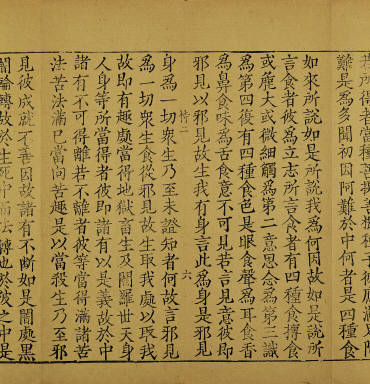 難是為多聞初因阿難於中何者是四種食
如來所說如是所說我為何因故如是說所
言食者彼為立志所言食者有四種食摶食
或麁大或微細觸為第二意思念為第三識
為第四復有四種食色是眼食聲為耳食香
為鼻食味為舌食意不可見若言見意彼即
邪見以邪見故生我有身言此為身是邪見
二 六
身為一切衆生乃至未證知者何故言邪見
為一切衆生食從邪見故生取我處以取我
故即有趣處當得地獄畜生及閻羅世天身
人身等所當得者彼即諸有以是義故於中
諸有不可得離若不離者彼等當得滿諸苦
法苦法滿已當向苦趣是以當殺生乃至邪
見彼成就不善因故諸有不斷如是闇處黑
闇輪轉故於生死中而法轉也於彼之中是